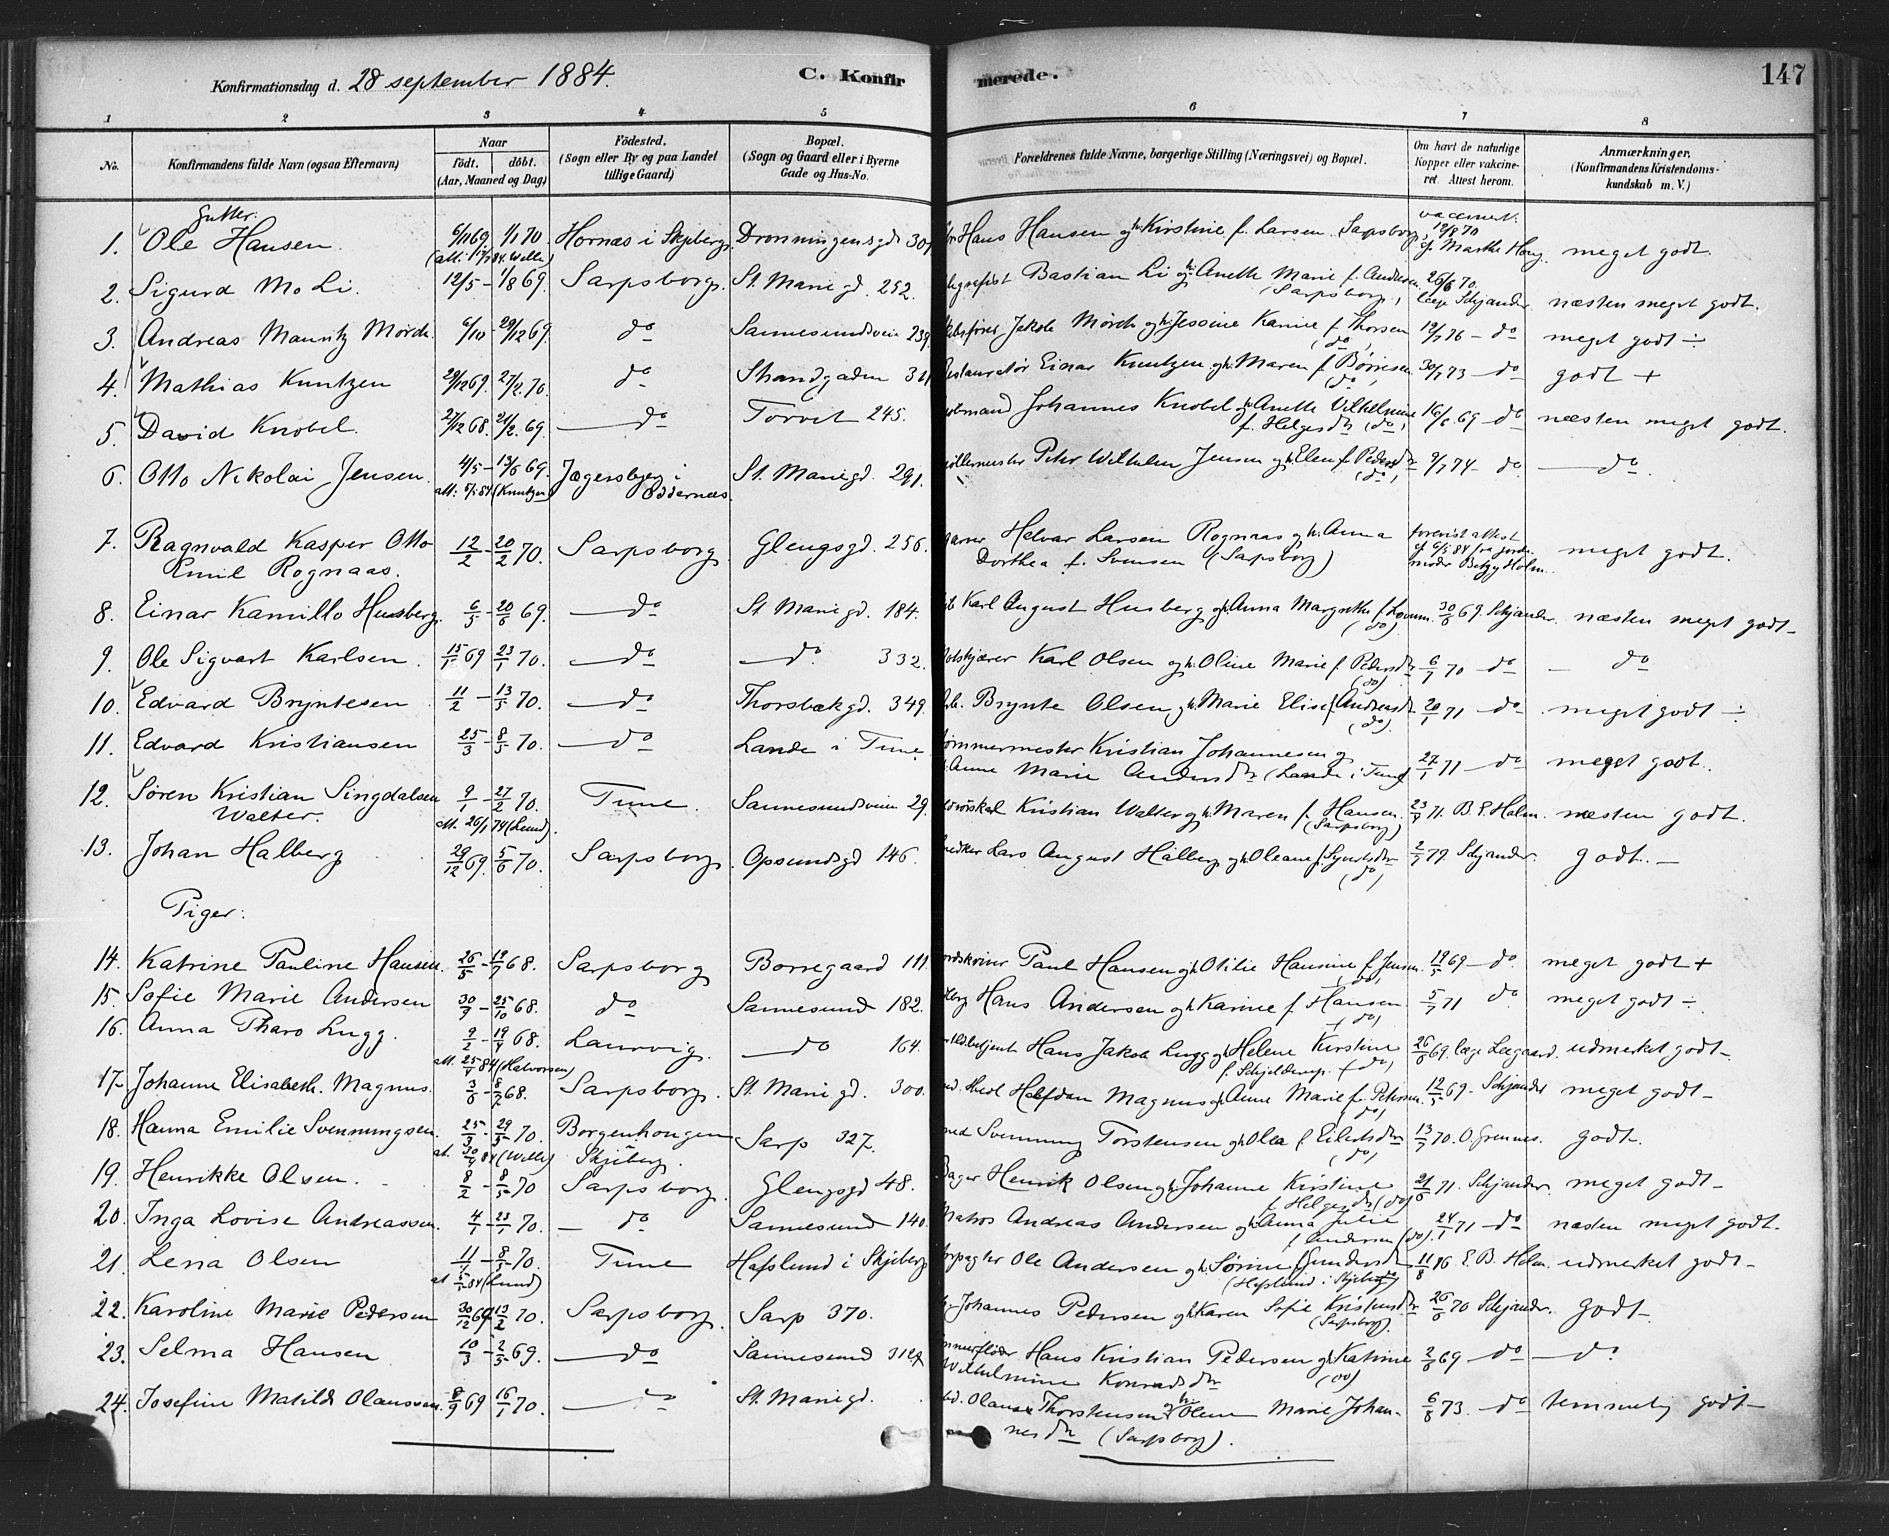 Konfirmationsdag d. 28 september 1884. C. Konfir merede. 147
1 2 3 4 5 6 7 8
No. Konfirmandens fulde Navn (ogsaa Efternavn) Naar födt. döbt. (Aar, Maaned og Dag) Födested. (Sogn eller By og paa Landet tillige Gaard) Bopæl. (Sogn og Gaard eller i Byerne Gade og Hus-No. Forældrenes fulde Navne, borgerlige Stilling (Næringsvei) og Bopæl. Om havt de naturlige Kopper eller vakcineret. Attest herom. Anmærkninger. (Konfirmandens Kristendomskundskab m. V.)
Gutter:
1. Ole Hansen. 6/11 69 1/1 70 Hornæs i Skjeberg Dronningensgd Hans Hansen og h. Kirstine f. Larsen. Sarpsborg, 12/8 70 meget godt.
2. Sigurd Mo Li. 12/5 - 1/8 69. Sarpsborg. St. Mariegd. 252. Bastian Li og h. Anette Marie f. Andersen (Sarpsborg) 26/6 70. Læge Schjander næsten meget godt.
3. Andreas Mauritz Mørch 6/10 - 29/12 69. do Sannesundsveien 239. Jakob Mørch og h. Jessine Karine f. Thorsen (do) 12/7 76 - do meget godt ÷
4. Mathias Knutzen 29/12 69. 27/2 70. do Strandgaden Einar Knutzen og h. Maren f. Børresen (do) 30/7 73 - do godt +
5. David Knobel. 27/12 68. 21/2 69. do Torvet 245. Johannes Knobel og h. Anette Vilhelmine f. Helgesdr (do) 16/6 69 - do næsten meget godt.
6. Otto Nikolai Jensen. 4/5 - 13/6 69. Jægersbyen i Oddernæs St. Mariegd. 291. Peter Wilhelm Jensen og h. Elen f. Pedersdr (do) 9/7 74 - do do.
att: 5/5 84 (Knutzen)
7. Ragnvald Kasper Otto Emil Rognaas. 12/2 - 20/2 70. Sarpsborg Glengsgd. 256. Helvar Larsen Rognaas og h. Anna Dorthea f. Svensen (Sarpsborg) forevist attest meget godt.
8. Einar Kamillo Husberg. 6/5 - 20/6 69. do St. Mariegd. 184. Karl August Husberg og h. Anna Margrethe (do). 30/6 69. Schjander. næsten meget godt
9. Ole Sigvart Karlsen. 15/1 69 23/1 70. do do 332. Karl Olsen og h. Oline Marie f. Pedersdr (do) 6/7 70 do do
10. Edvard Bryntesen 11/2 - 13/5 70. do Thorsbækgd. 349. Brynte Olsen og h. Marie Elise Andreasdr (do). 20/1 71 - do meget godt ÷
11. Edvard Kristiansen 25/3 - 8/5 70. do Lande i Tune. Tømmermester Kristian Johannesen og Anne Marie Andersdr (Lande i Tune) 27/1 71 - do meget godt.
12. Søren Kristian Singdalsen Walter. 9/1 - 27/2 70. Tune. Sannesundsveien 29. Kristian Walter og h. Maren f. Hansen. (Sarpsborg) 23/7 71. Holm. næsten godt.
att. 26/1 74 (Lund).
13. Johan Halberg 29/12 69. 5/6 70. Sarpsborg. Opsundsgd 146. Lars August Halberg og h. Oleane f. Syvertsdr (do) 2/7 79. Schjander. godt.
Piger:
14. Katrine Pauline Hansen. 26/5 - 19/7 68. Sarpsborg Borregaard 111. Paul Hansen og h. Otilie Hansine f. Jensen. (do) 19/5 69 - do meget godt +
15. Sofie Marie Andersen 30/9 - 25/10 68. do Sannesund 182. Hans Andersen og h. Karine f. Hansen (do) 5/7 71 do. meget godt ÷
16. Anna Tharo Lugg. 2/2 - 19/4 68. Laurvig. do 164. Hans Jakob Lugg og h. Helene Kirstine f. Schjelderup. (do) 26/6 69. læge Leegaard. udmerket godt
att. 25/1 84 (Halvorsen)
17. Johanne Elisabeth Magnus. 3/6 - 8/7 68. Sarpsborg. St. Mariegd. 300. Halfdan Magnus og h. Anne Marie f. Petersen. (do) 12/5 69 - Schjander meget godt
18. Hanna Emilie Svenningsen. 25/3 - 29/5 70. Borgenhougen Skjeberg. Sarp 327. Svenning Torstensen og h. Olea f. Eilertsdr (do) 13/7 70. O. Grennes. godt.
19. Henrikke Olsen. 8/2 - 8/5 70 Sarpsborg. Glengsgd 48. Bager Henrik Olsen og h. Johanne Kirstine f. Helgesdr (do) 21/6 71. Schjander. meget godt
20. Inga Lovise Andreassen. 4/1 - 23/1 70. do Sannesund 140. Matros Andreas Andersen og h. Anna Julie f. Andersen (do). 24/1 71 - do næsten meget godt.
21. Lena Olsen 11/1 - 8/5 70. Tune Hafslund i Skjeberg Ole Andersen og h. Sørine Gundersdr (Hafslund i Skjeberg) 11/8 76. E. B. Holm. udmerket godt
att 5/5 84 (Lund)
22. Karoline Marie Pedersen 30/12 69 13/2 70. Sarpsborg. Sarp 370. Johannes Pedersen og h. Karen Sofie Kristensdr (Sarpsborg). 26/6 70 Schjander. godt
23. Selma Hansen 10/3 - 2/5 69. do Sannesund Hans Kristian Pedersen og h. Katrine Wilhelmine Konradsdr (do) 2/6 69 - do do
24. Josefine Matilde Olaussen. 8/9 69 16/1 70. do St. Mariegd. Olaus Thorstensen og h. Oline Marie Johannesdr (Sarpsborg). 6/8 73. - do temmelig godt